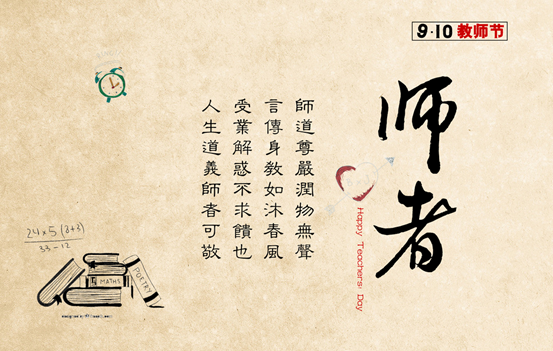 9·10 教师节
师者
Happy Teachers' Day
師道尊嚴潤物無聲
言傳身教如沐春風
受業解惑不求饋也
人生道義師者可敬
24×5(8+3)
33-12
MATHS
POETRY